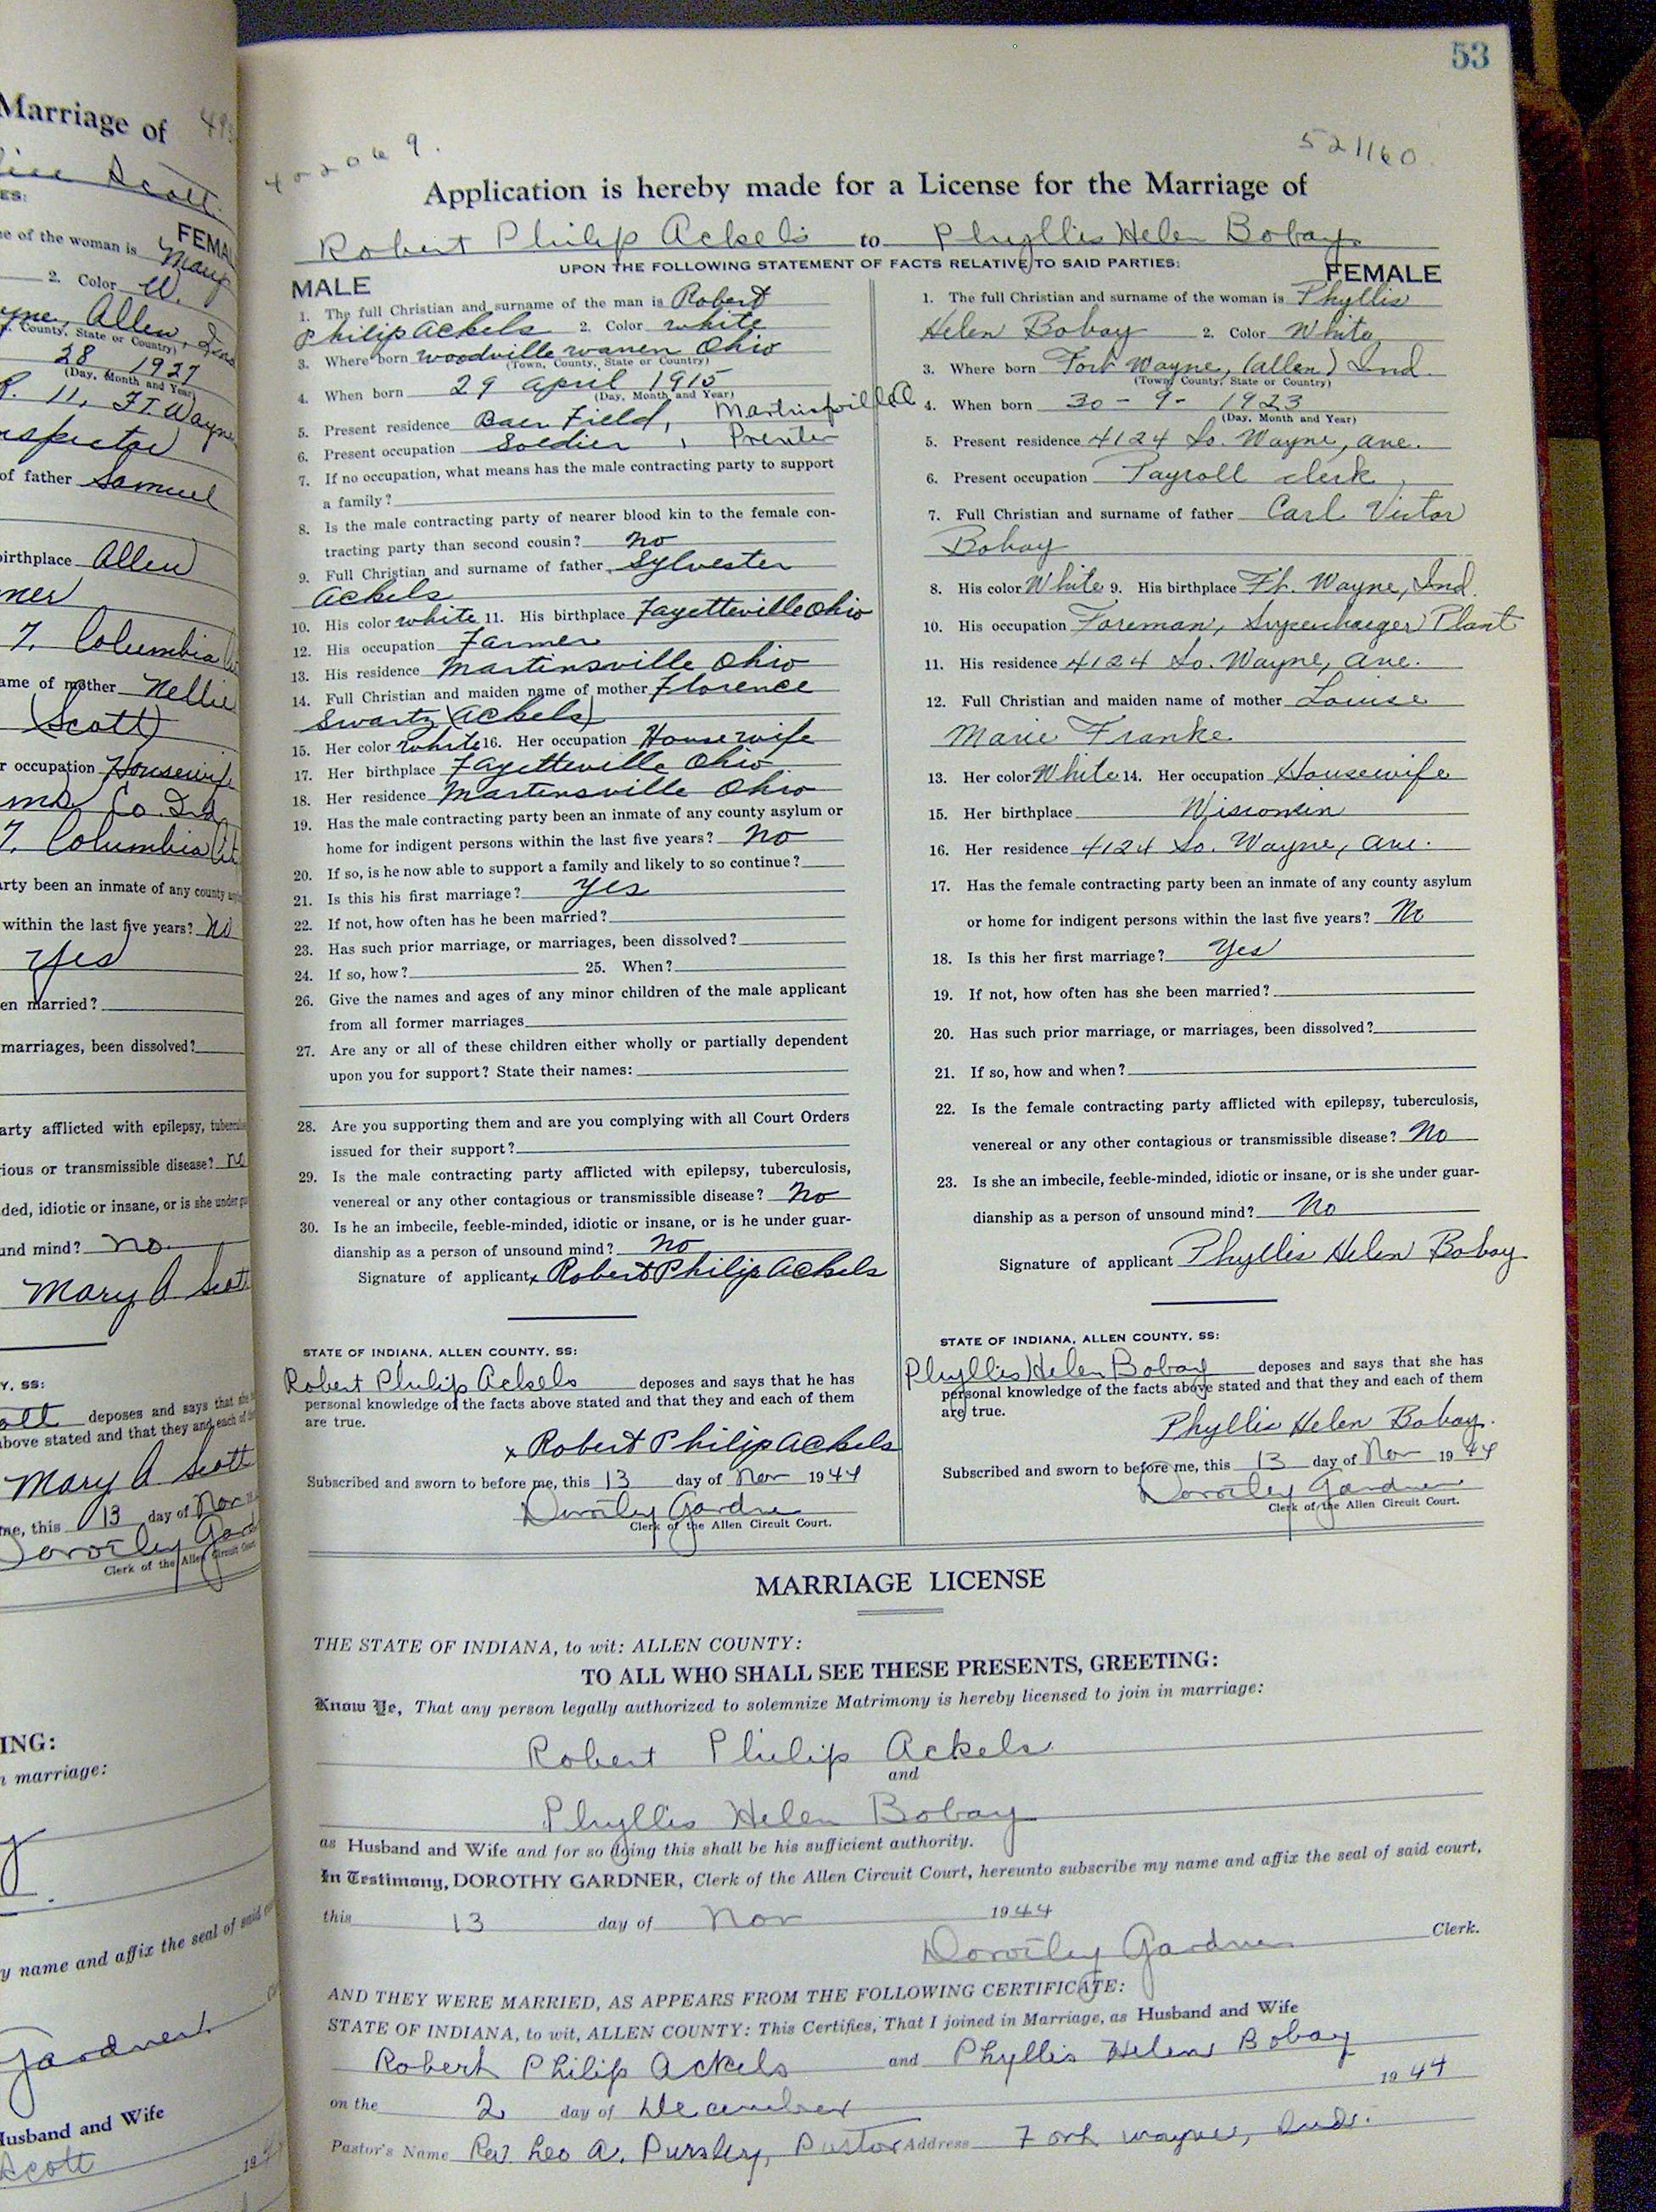 Marriage of
Scott
FEMA
ne of the woman is Mary
2. Color W.
Allen, Ind
County, State or Country)
28 1927
(Day, Month and Year)
R. 11, Ft Wayne
Inspector
of father Samuel
birthplace Allen
7. Columbia
ame of mother Nellie
(Scott)
r occupation Housewife
Co. Ind
7. Columbia
arty been an inmate of any county
within the last five years? No
Yes
en married?
marriages, been dissolved?
arty afflicted with epilepsy, tubercul
ious or transmissible disease? no
ded, idiotic or insane, or is she under gu
und mind? No.
Mary A Scott
Y, SS:
ott deposes and says that she
above stated and that they and each of the
Mary A Scott
me, this 13 day of Nov
Dorothy Gard
Clerk of the Allen Circuit Court
ING:
n marriage:
y name and affix the seal of said co
Gardner
Husband and Wife
Scott
19
53
402069.
521160.
Application is hereby made for a License for the Marriage of
Robert Philip Ackels to Phyllis Helen Bobay
UPON THE FOLLOWING STATEMENT OF FACTS RELATIVE TO SAID PARTIES:
MALE
1. The full Christian and surname of the man is Robert
Philip Ackels 2. Color white
3. Where born Woodville Warren Ohio
(Town, County, State or Country)
4. When born 29 April 1915
(Day, Month and Year)
5. Present residence Baer Field, Martinsville O
6. Present occupation Soldier, Printer
7. If no occupation, what means has the male contracting party to support
a family?
8. Is the male contracting party of nearer blood kin to the female con-
tracting party than second cousin? no
9. Full Christian and surname of father Sylvester
Ackels
10. His color white 11. His birthplace Fayetteville Ohio
12. His occupation Farmer
13. His residence Martinsville Ohio
14. Full Christian and maiden name of mother Florence
Swartz (Ackels)
15. Her color white 16. Her occupation Housewife
17. Her birthplace Fayetteville Ohio
18. Her residence Martinsville Ohio
19. Has the male contracting party been an inmate of any county asylum or
home for indigent persons within the last five years? No
20. If so, is he now able to support a family and likely to so continue?
21. Is this his first marriage? yes
22. If not, how often has he been married?
23. Has such prior marriage, or marriages, been dissolved?
24. If so, how? 25. When?
26. Give the names and ages of any minor children of the male applicant
from all former marriages
27. Are any or all of these children either wholly or partially dependent
upon you for support? State their names:
28. Are you supporting them and are you complying with all Court Orders
issued for their support?
29. Is the male contracting party afflicted with epilepsy, tuberculosis,
venereal or any other contagious or transmissible disease? No
30. Is he an imbecile, feeble-minded, idiotic or insane, or is he under guar-
dianship as a person of unsound mind? No
Signature of applicant x Robert Philip Ackels
STATE OF INDIANA, ALLEN COUNTY, SS:
Robert Philip Ackels deposes and says that he has
personal knowledge of the facts above stated and that they and each of them
are true.
x Robert Philip Ackels
Subscribed and sworn to before me, this 13 day of Nov 1944
Dorothy Gardner
Clerk of the Allen Circuit Court.
FEMALE
1. The full Christian and surname of the woman is Phyllis
Helen Bobay 2. Color White
3. Where born Fort Wayne, (Allen) Ind.
(Town, County, State or Country)
4. When born 30 - 9 - 1923
(Day, Month and Year)
5. Present residence 4124 So. Wayne, Ave.
6. Present occupation Payroll clerk
7. Full Christian and surname of father Carl Victor
Bobay
8. His color White 9. His birthplace Ft. Wayne, Ind.
10. His occupation Foreman, Supercharger Plant
11. His residence 4124 So. Wayne, Ave.
12. Full Christian and maiden name of mother Louise
Marie Franke
13. Her color White 14. Her occupation Housewife
15. Her birthplace Wisconsin
16. Her residence 4124 So. Wayne, Ave.
17. Has the female contracting party been an inmate of any county asylum
or home for indigent persons within the last five years? No
18. Is this her first marriage? Yes
19. If not, how often has she been married?
20. Has such prior marriage, or marriages, been dissolved?
21. If so, how and when?
22. Is the female contracting party afflicted with epilepsy, tuberculosis,
venereal or any other contagious or transmissible disease? No
23. Is she an imbecile, feeble-minded, idiotic or insane, or is she under guar-
dianship as a person of unsound mind? No
Signature of applicant Phyllis Helen Bobay
STATE OF INDIANA, ALLEN COUNTY, SS:
Phyllis Helen Bobay deposes and says that she has
personal knowledge of the facts above stated and that they and each of them
are true.
Phyllis Helen Bobay.
Subscribed and sworn to before me, this 13 day of Nov 1944
Dorothy Gardner
Clerk of the Allen Circuit Court.
MARRIAGE LICENSE
THE STATE OF INDIANA, to wit: ALLEN COUNTY:
TO ALL WHO SHALL SEE THESE PRESENTS, GREETING:
Know Ye, That any person legally authorized to solemnize Matrimony is hereby licensed to join in marriage:
Robert Philip Ackels
and
Phyllis Helen Bobay
as Husband and Wife and for so doing this shall be his sufficient authority.
In Testimony, DOROTHY GARDNER, Clerk of the Allen Circuit Court, hereunto subscribe my name and affix the seal of said court,
this 13 day of Nov 1944
Dorothy Gardner Clerk.
AND THEY WERE MARRIED, AS APPEARS FROM THE FOLLOWING CERTIFICATE:
STATE OF INDIANA, to wit, ALLEN COUNTY: This Certifies, That I joined in Marriage, as Husband and Wife
Robert Philip Ackels and Phyllis Helen Bobay
on the 2 day of December 1944
Pastor's Name Rev. Leo A. Pursley, Pastor Address Fort Wayne, Ind.